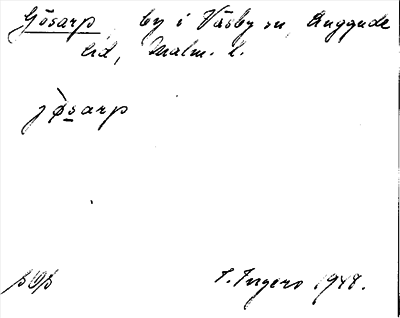 Gösarp, by i Väsby sn, Luggude
hd, Malm. l.
jø̀sarp
I. Ingers 1948.